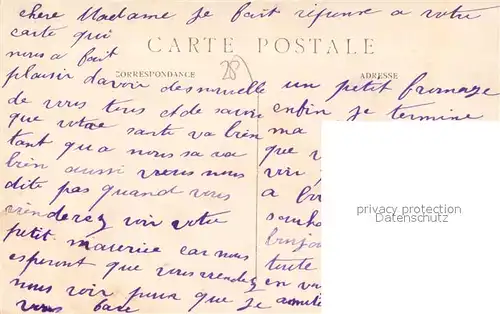 chere Madame je fait réponse a votre
carte qui
nous a fait
CARTE POSTALE
CORRESPONDANCE
ADRESSE
28
plaisir davoir des nouvelle
de vous tous et de savoir
que votre sante va bien
tant qu a nous sa va
bien aussi vous nous
dite pas quand vous
viendrez voir votre
petit maurice car nous
esperont que vous viendrez
nous voir peux que je
vous
un petit fromage
enfin je termine
ma
que
voir
a
souha
bonjou
toute
en
privacy protection
Datenschutz